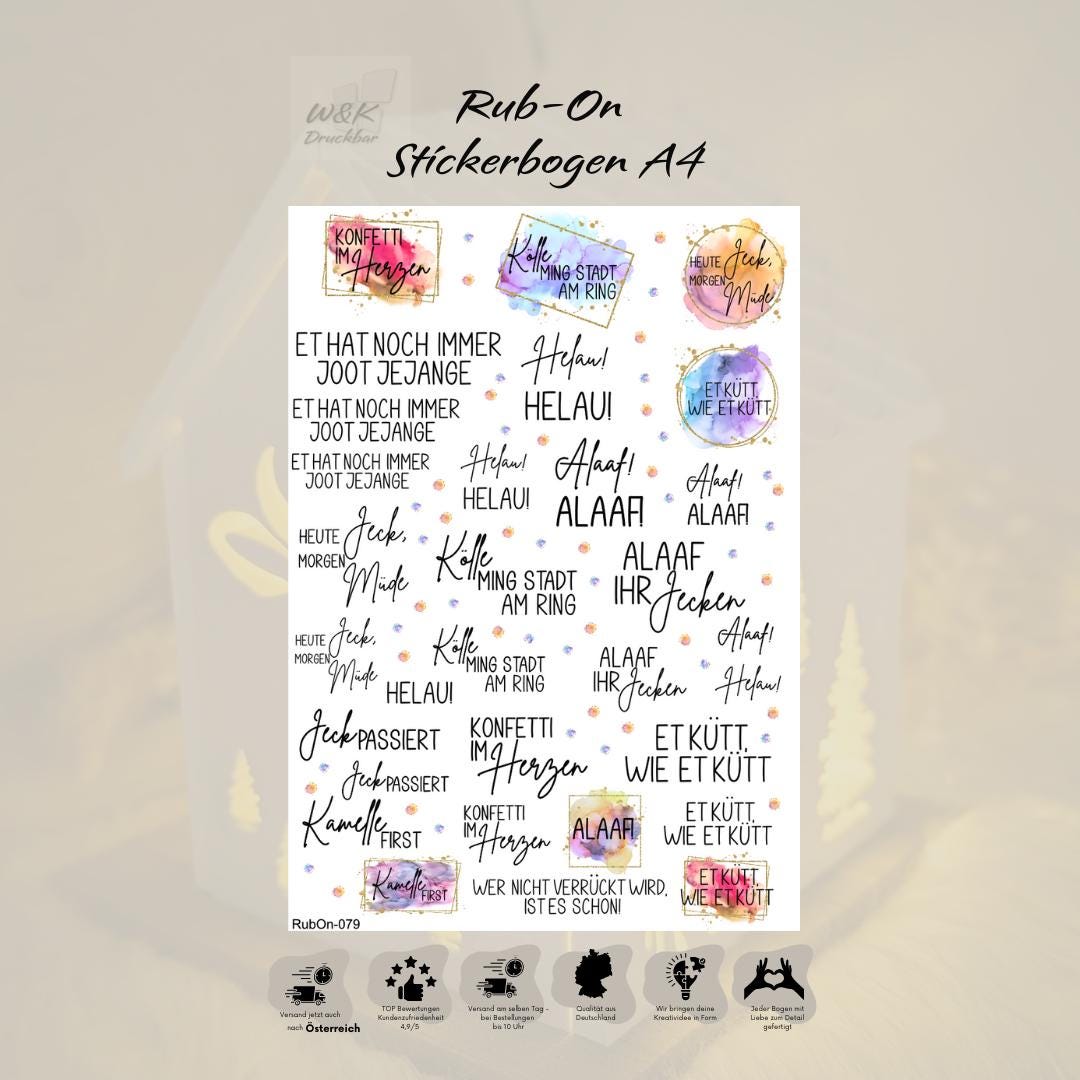 W&K
Druckbar
Rub-On
Stickerbogen A4
KONFETTI
IM Herzen
Kölle
MING STADT
AM RING
HEUTE Jeck,
MORGEN
Müde
ET HAT NOCH IMMER
JOOT JEJANGE
Helau!
HELAU!
ET KÜTT,
WIE ET KÜTT
ET HAT NOCH IMMER
JOOT JEJANGE
ET HAT NOCH IMMER
JOOT JEJANGE
Helau!
HELAU!
Alaaf!
ALAAF!
Alaaf!
ALAAF!
HEUTE Jeck,
MORGEN
Müde
Kölle
MING STADT
AM RING
ALAAF
IHR Jecken
HEUTE Jeck,
MORGEN
Müde
HELAU!
Kölle
MING STADT
AM RING
ALAAF
IHR Jecken
Alaaf!
Helau!
Jeck PASSIERT
Jeck PASSIERT
KONFETTI
IM Herzen
ET KÜTT,
WIE ET KÜTT
Kamelle
FIRST
KONFETTI
IM Herzen
ALAAF!
ET KÜTT,
WIE ET KÜTT
Kamelle
FIRST
WER NICHT VERRÜCKT WIRD,
IST ES SCHON!
ET KÜTT,
WIE ET KÜTT
RubOn-079
Versand jetzt auch
nach Österreich
TOP Bewertungen
Kundenzufriedenheit
4,9/5
Versand am selben Tag -
bei Bestellungen
bis 10 Uhr
Qualität aus
Deutschland
Wir bringen deine
Kreatividee in Form
Jeder Bogen mit
Liebe zum Detail
gefertigt